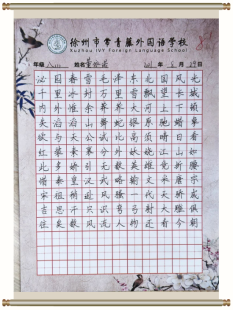 徐州市常青藤外国语学校
Xuzhou IVY Foreign Language School
年级 姓名
沁园春雪毛泽东北国风光
千里冰封万里雪飘望长城
内外惟余莽莽大河上下顿
失滔滔山舞银蛇原驰蜡象
欲与天公试比高须晴日看
红装素裹分外妖娆江山如
此多娇引无数英雄竞折腰
惜秦皇汉武略输文采唐宗
宋祖稍逊风骚一代天骄成
吉思汗只识弯弓射大雕俱
往矣数风流人物还看今朝